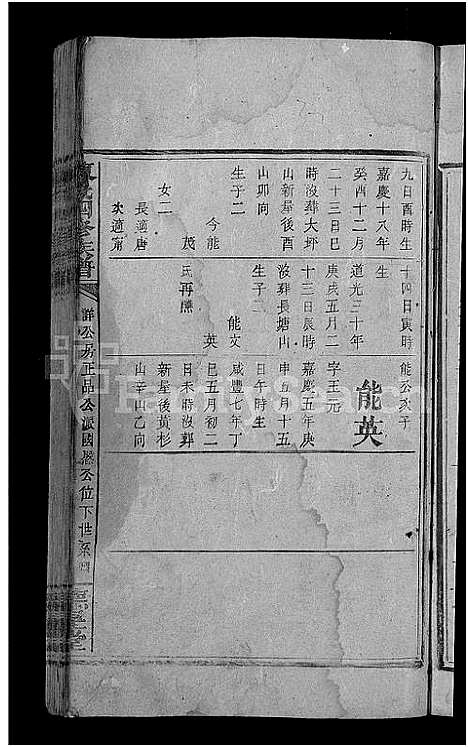 九日酉時生
嘉慶十八年
癸酉十二月
二十三日巳
時沒葬大坪
山新屋後酉
山卯向
生子二
今能
茂
女二
長適唐
次適甯
十四日寅時
生
道光三十年
庚戌五月二
十三日辰時
沒葬長塘山
生子二
能文
英
氏再醮
能公次子
能英
字玉元
嘉慶五年庚
申五月十五
日午時生
咸豐七年丁
巳五月初二
日未時沒葬
新屋後黃杉
山辛山乙向
四修族譜
祥公房正品公派國
公位下世系
堂